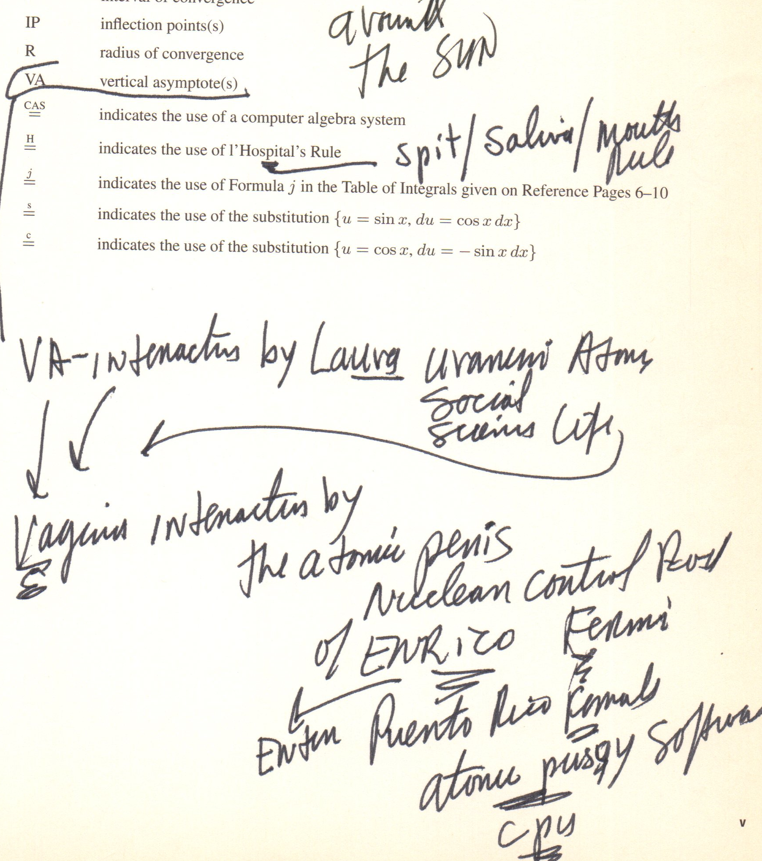 interval of convergence
around
IP inflection points(s)
the SUN
R radius of convergence
VA vertical asymptote(s)
CAS = indicates the use of a computer algebra system
H = indicates the use of l'Hospital's Rule
spit/saliva/mouth
Rule
j = indicates the use of Formula j in the Table of Integrals given on Reference Pages 6–10
s = indicates the use of the substitution {u = sin x, du = cos x dx}
c = indicates the use of the substitution {u = cos x, du = − sin x dx}
VA-interaction by Laura
Social
Life
Vagina interaction by
the atomic penis
Nuclear control Rod
of ENRICO Fermi
Enter Puerto Rico Female
atomic pussy Softwa
cpu
v